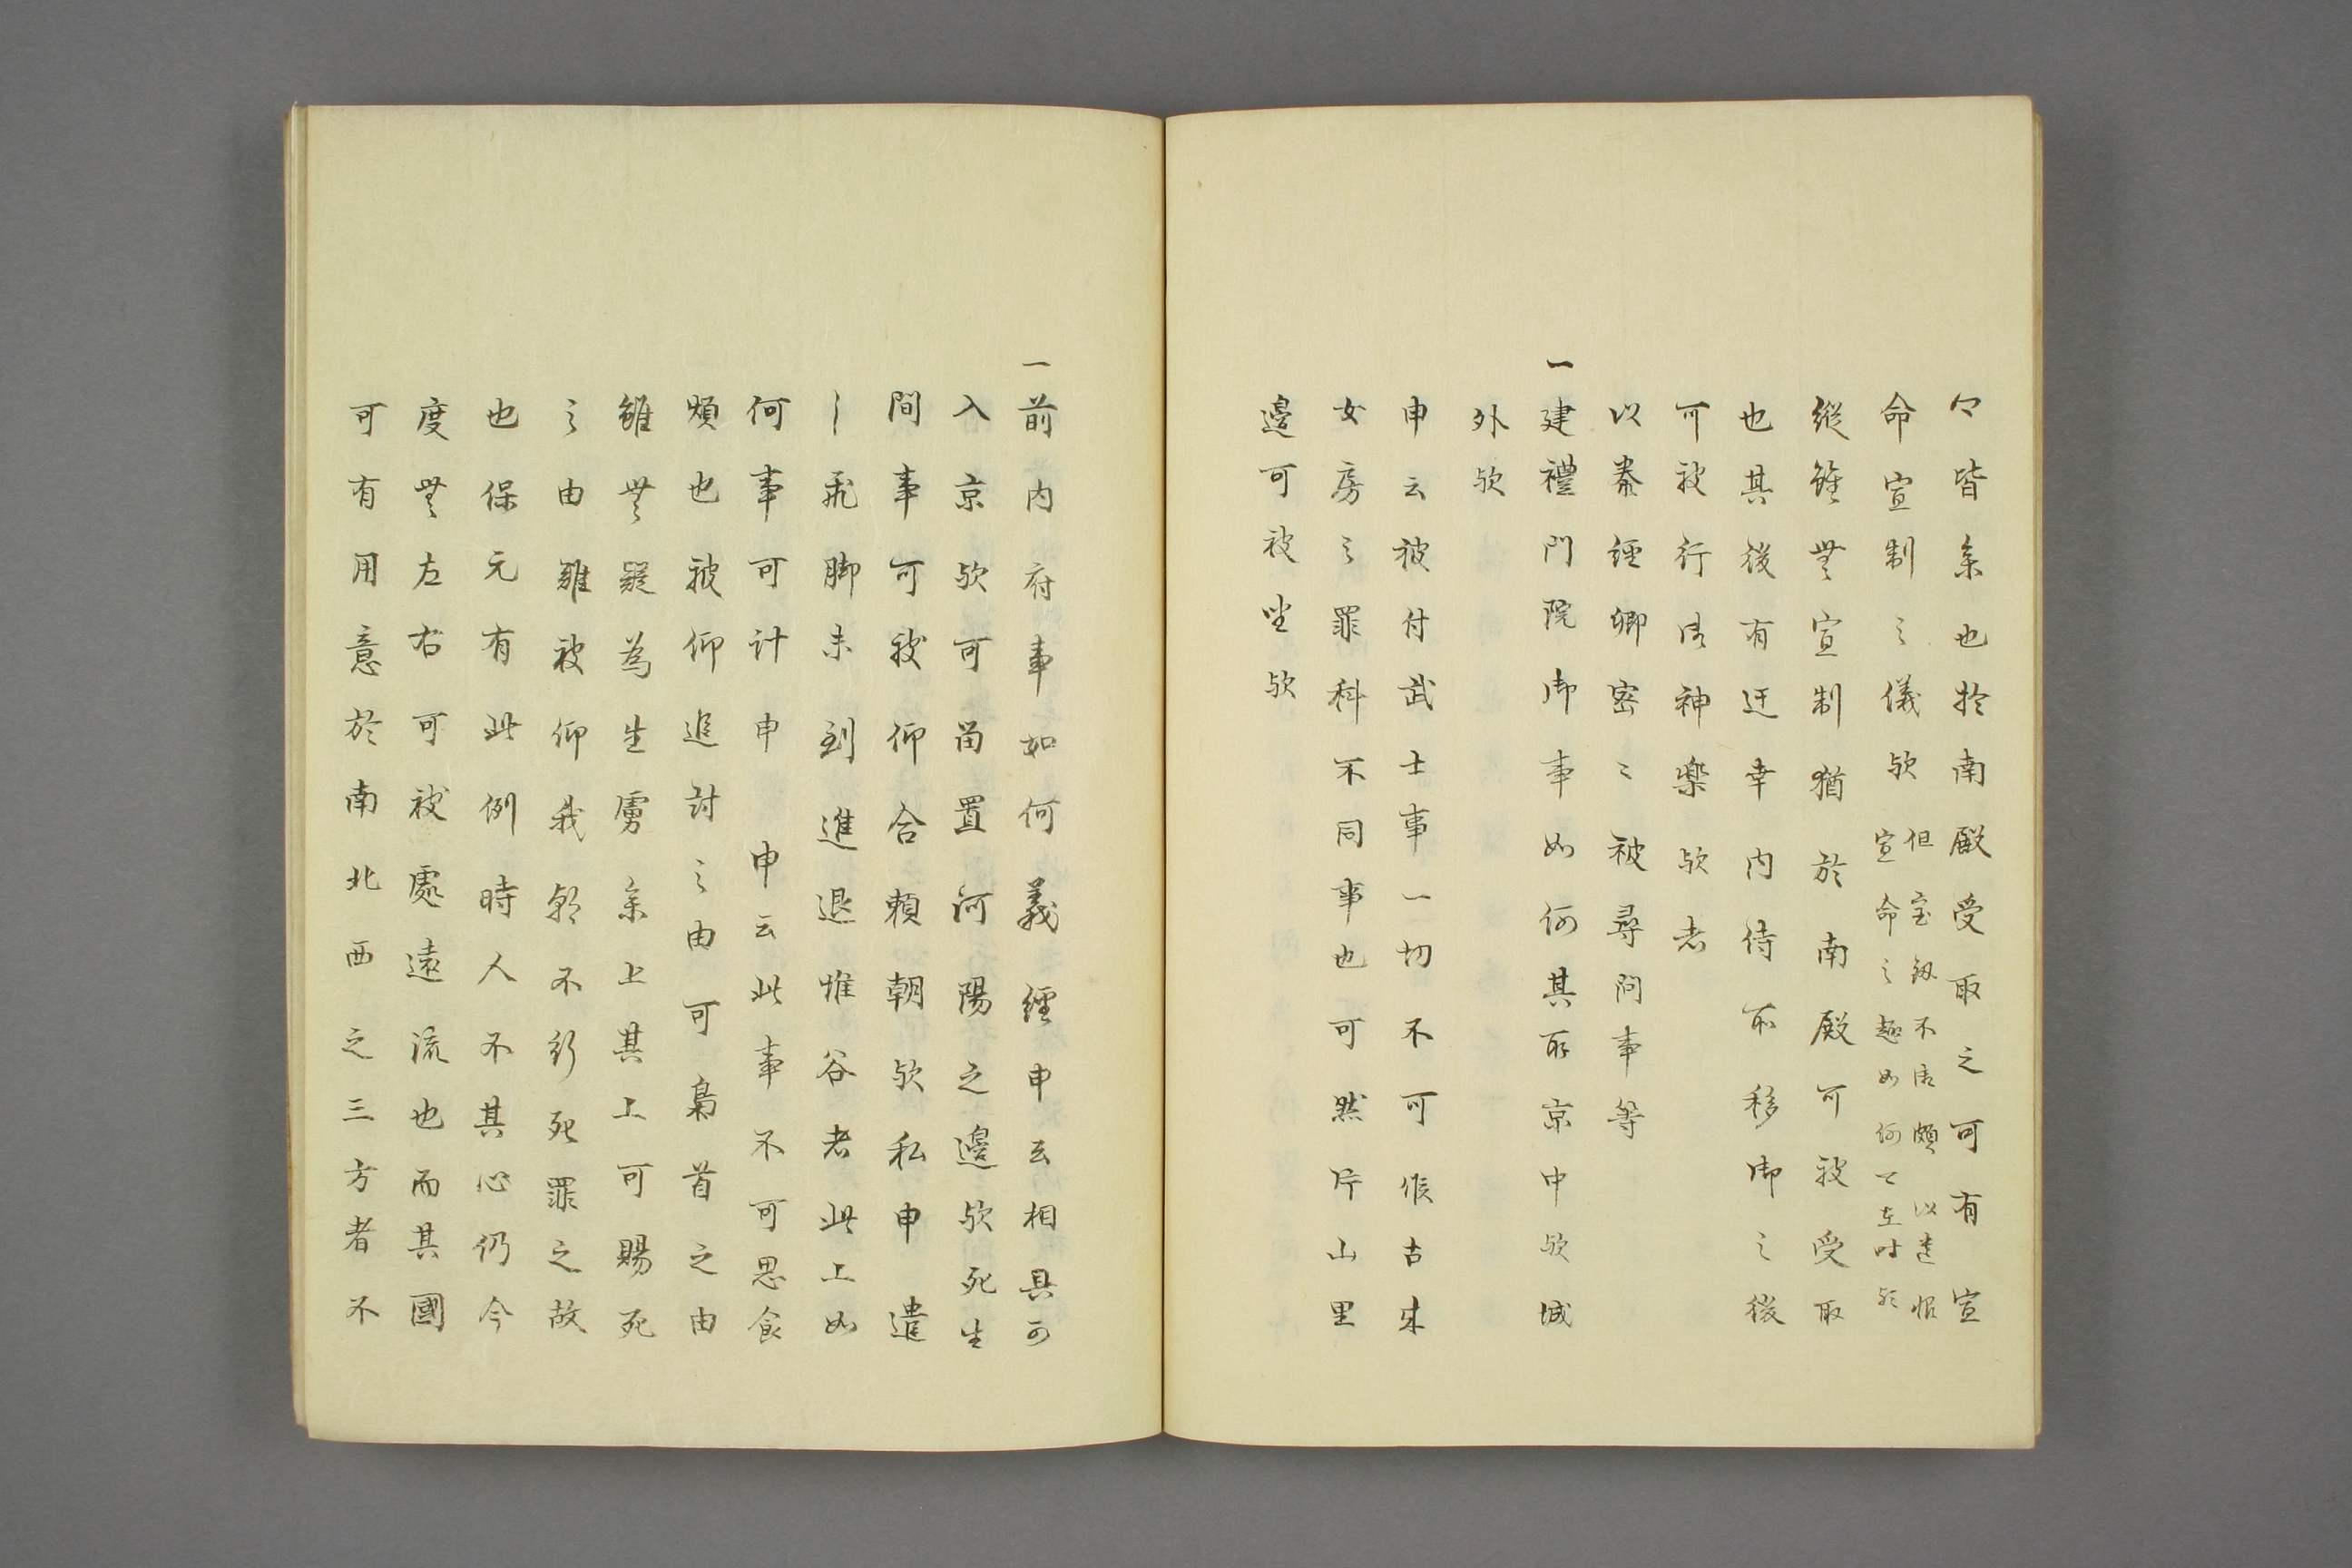 々皆参也於南殿受取之可有宣
命宣制之儀歟但宝釼不陪頗以遺恨
宣命之趣如何可在時歟
縦雖無宣制猶於南殿可被受取
也其後有迁幸内侍所移御之後
可被行御神楽歟者
以泰経卿密々被尋問事等
一建禮門院御事如何其所京中歟城
外歟
申云被付武士事一切不可候古来
女房之罪科不同事也可然片山里
邊可被坐歟
一前内府事如何義経申云相具可
入京歟可留置河陽之邊歟死生
間事可被仰合頼朝歟私申遣
了飛脚未到進退惟谷者此上如
何事可計申 申云此事不可思食
煩也被仰追討之由可梟首之由
雖無疑為生虜参上其上可賜死
之由雖被仰我朝不行死罪之故
也保元有此例時人不其心仍今
度無左右可被處遠流也而其國
可有用意於南北西之三方者不